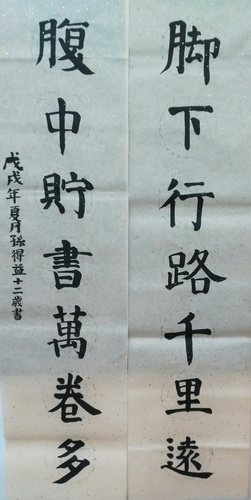 脚下行路千里遠
腹中貯書萬卷多
戊戌年夏月孫得益十二歲書